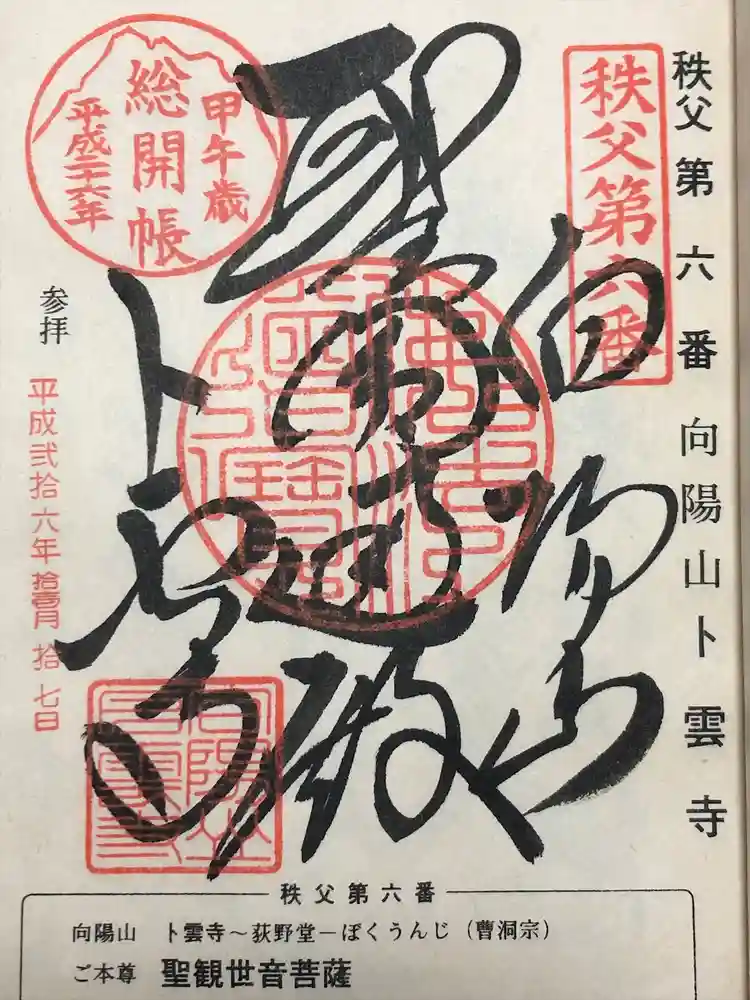 秩父第六番 向陽山卜雲寺
秩父第六番
向陽山
卜雲寺
甲午歳
総開帳
平成二十六年
佛法
僧寶
向陽山
卜雲寺
参拝 平成弐拾六年拾壹月拾七日
秩父第六番
向陽山 卜雲寺～荻野堂－ぼくうんじ（曹洞宗）
ご本尊 聖観世音菩薩